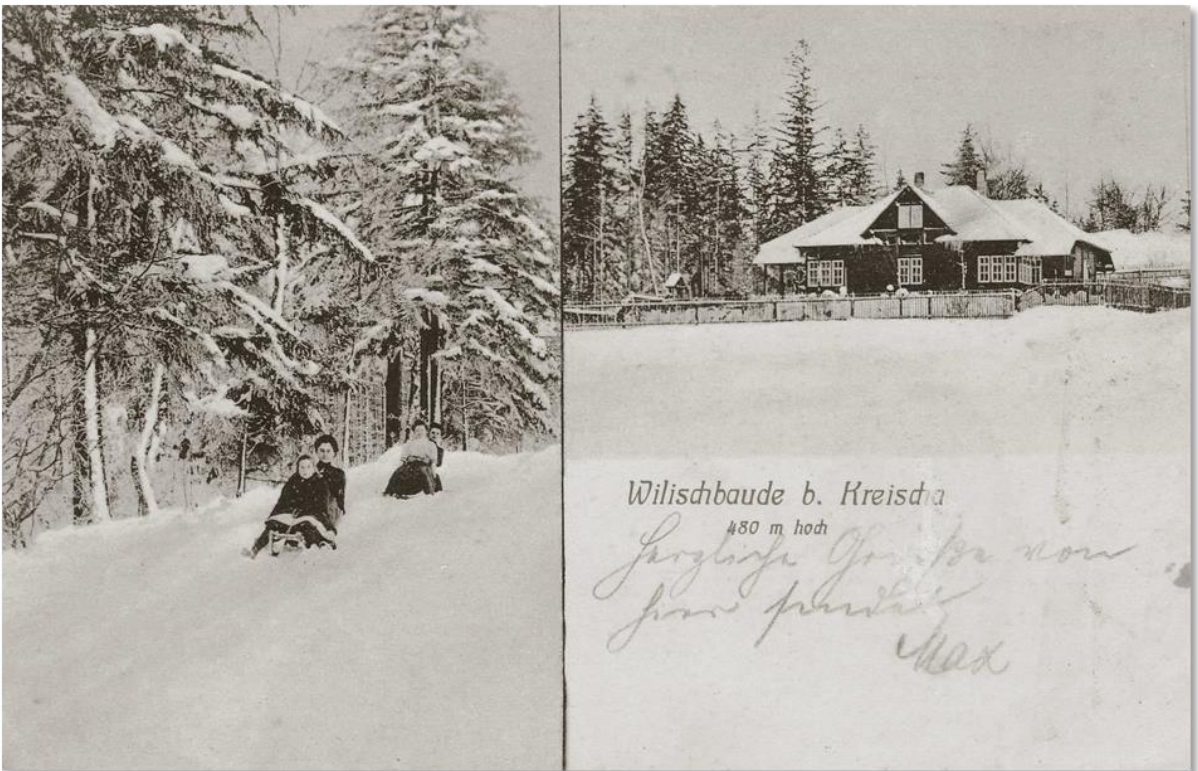 Wilischbaude b. Kreischa
480 m hoch
Herzliche Grüße von
hier sendet
Max